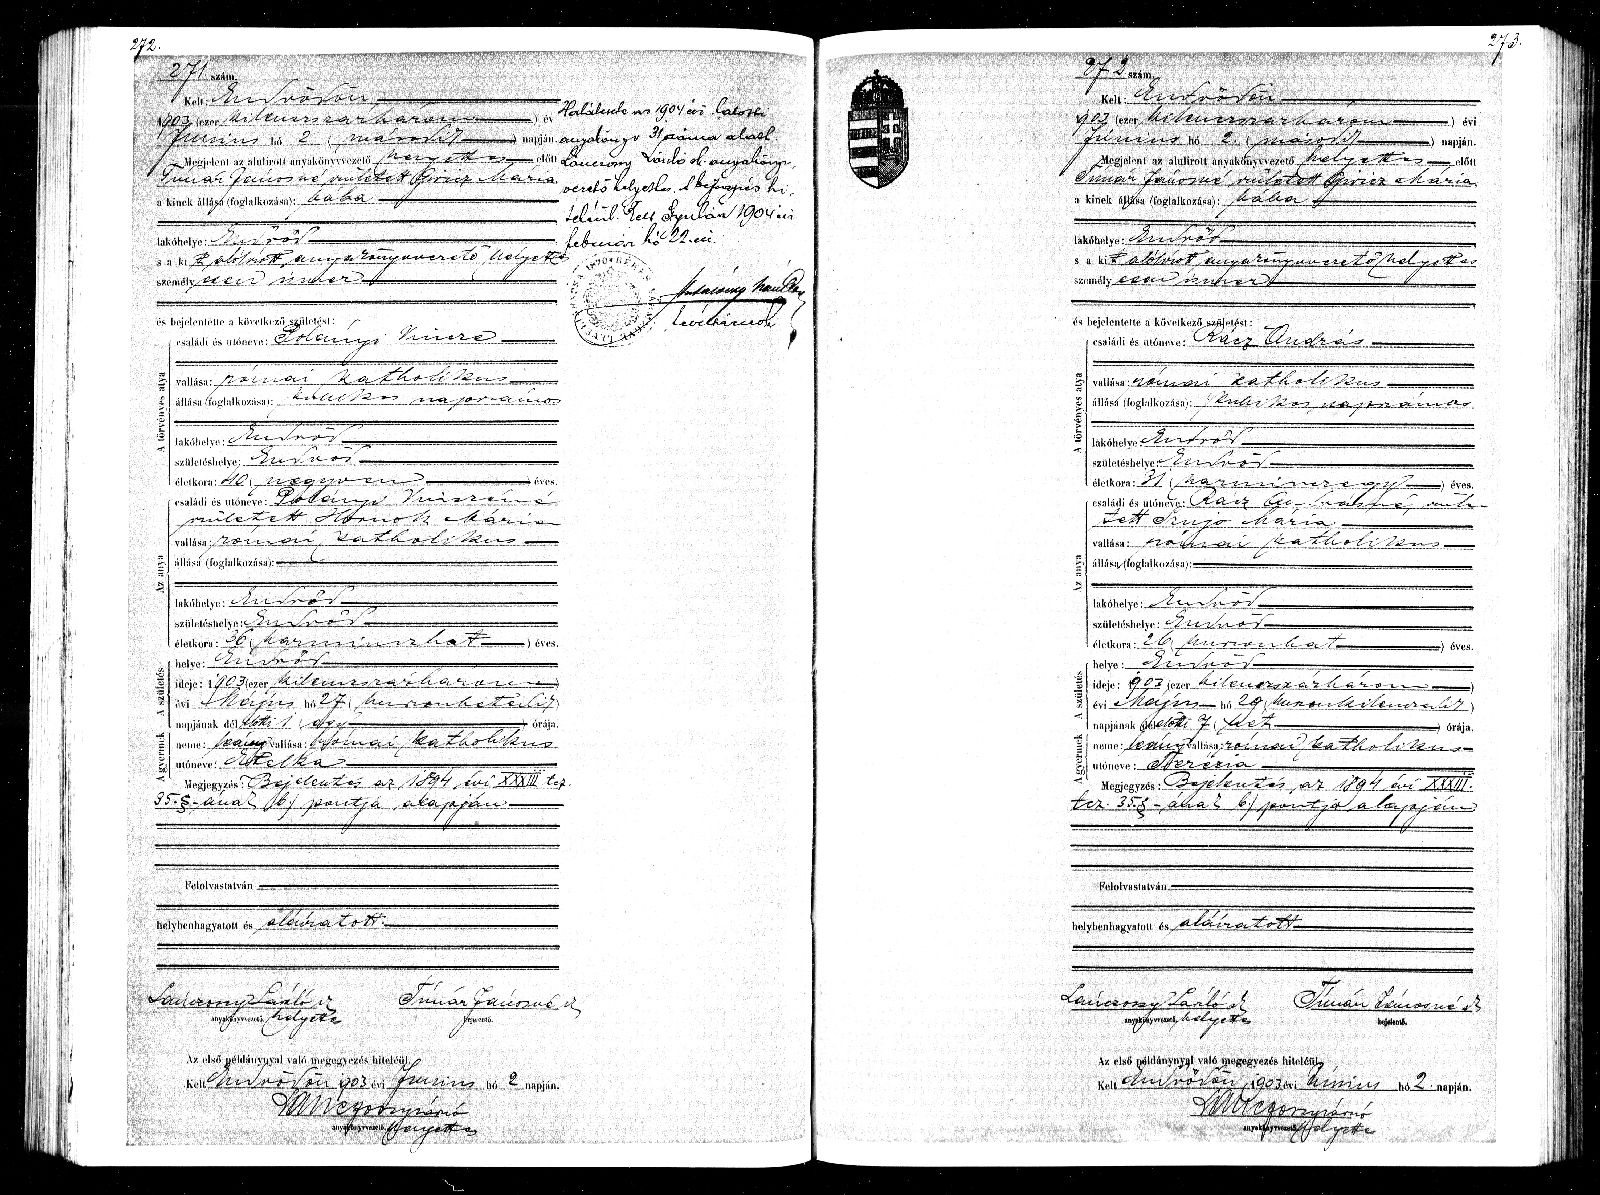 272.
271 szám.
Kelt: Endrődön
1903 (ezer kilenczszázhárom) évi
Junius hó 2 (második) napján.
Megjelent az alulirott anyakönyvvezető helyettes előtt
Timár Jánosné született Giricz Mária
a kinek állása (foglalkozása): bába
lakóhelye: Endrőd
s a kit alólirott anyakönyvvezető helyettes
személyesen ismer
és bejelentette a következő születést:
A törvényes atya
családi és utóneve: Polányi Vincze
vallása: római katholikus
állása (foglalkozása): kubikos napszámos
lakóhelye: Endrőd
születéshelye: Endrőd
életkora: 40 (negyven) éves.
Az anya
családi és utóneve: Polányi Vinczéné
született Hornok Mária
vallása: római katholikus
állása (foglalkozása):
lakóhelye: Endrőd
születéshelye: Endrőd
életkora: 36 (harminczhat) éves.
A születés
helye: Endrőd
ideje: 1903 (ezer kilenczszázhárom)
évi Május hó 27 (huszonhetedik)
napjának délelőtti 1 (egy) órája.
A gyermek
neme: leány vallása: római katholikus
utóneve: Etelka
Megjegyzés: Bejelentés az 1894 évi XXXIII tcz.
35.§-ának b) pontja alapján
Felolvastatván
helybenhagyatott és aláiratott.
Lánczony László sk Timár Jánosné sk
anyakönyvvezető. helyettes bejelentő.
Az első példánynyal való megegyezés hiteléül.
Kelt Endrődön 1903 évi Junius hó 2 napján.
anyakönyvvezető. helyettes
1904 évi
anyakönyv 31 száma alatt
Lánczony László sk. anyakönyv
vezető helyettes. A bejegyzés hi-
teléül. Kelt Gyulán 1904 évi
február hó 22.-én.
levéltárnok
273.
272 szám.
Kelt: Endrődön
1903 (ezer kilenczszázhárom) évi
Június hó 2. (második) napján.
Megjelent az alulirott anyakönyvvezető helyettes előtt
Timár Jánosné született Giricz Mária
a kinek állása (foglalkozása): bába
lakóhelye: Endrőd
s a kit alólirott anyakönyvvezető helyettes
személyesen ismer
és bejelentette a következő születést:
A törvényes atya
családi és utóneve: Rácz András
vallása: római katholikus
állása (foglalkozása): kubikos napszámos
lakóhelye: Endrőd
születéshelye: Endrőd
életkora: 31 (harminczegy) éves.
Az anya
családi és utóneve: Rácz Andrásné, szüle-
tett Szujo Mária
vallása: római katholikus
állása (foglalkozása):
lakóhelye: Endrőd
születéshelye: Endrőd
életkora: 26 (huszonhat) éves.
A születés
helye: Endrőd
ideje: 1903 (ezer kilenczszázhárom)
évi Május hó 29 (huszonkilenczedik)
napjának délelőtti 7 (hét) órája.
A gyermek
neme: leány vallása: római katholikus
utóneve: Terézia
Megjegyzés: Bejelentés az 1894 évi XXXIII.
tcz. 35.§-ának b) pontja alapján
Felolvastatván
helybenhagyatott és aláiratott
Lánczony László sk Timár Jánosné sk
anyakönyvvezető. helyettes bejelentő.
Az első példánynyal való megegyezés hiteléül.
Kelt Endrődön, 1903 évi Június hó 2. napján.
anyakönyvvezető. helyettes